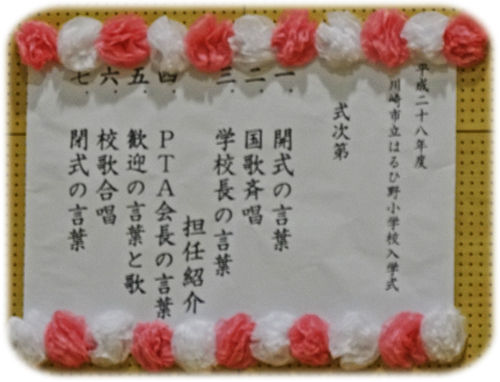 平成二十八年度
川崎市立はるひ野小学校入学式
式次第
一．開式の言葉
二．国歌斉唱
三．学校長の言葉
担任紹介
四．PTA会長の言葉
五．歓迎の言葉と歌
六．校歌合唱
七．閉式の言葉